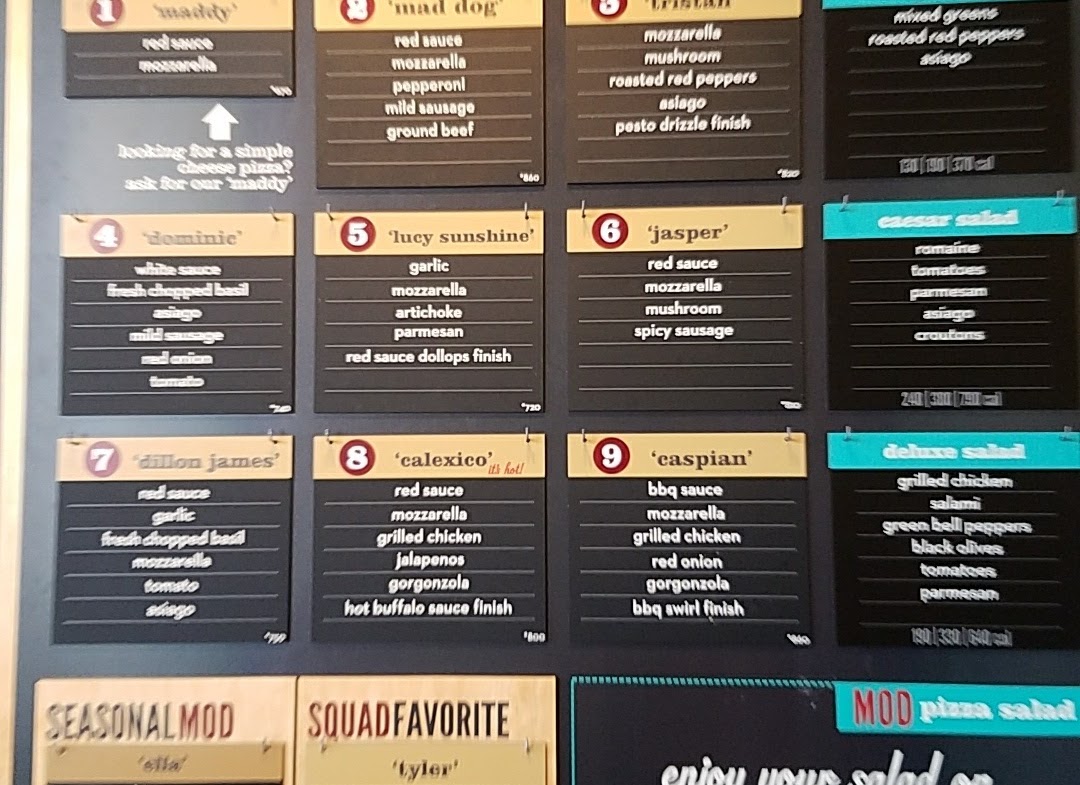 1 'maddy'
red sauce
mozzarella
looking for a simple
cheese pizza?
ask for our 'maddy'
2 'mad dog'
red sauce
mozzarella
pepperoni
mild sausage
ground beef
860
3 'tristan'
mozzarella
mushroom
roasted red peppers
asiago
pesto drizzle finish
mixed greens
roasted red peppers
asiago
130|190|370 cal
4 'dominic'
white sauce
fresh chopped basil
asiago
mild sausage
red onion
tomato
5 'lucy sunshine'
garlic
mozzarella
artichoke
parmesan
red sauce dollops finish
720
6 'jasper'
red sauce
mozzarella
mushroom
spicy sausage
caesar salad
romaine
tomatoes
parmesan
asiago
croutons
7 'dillon james'
red sauce
garlic
fresh chopped basil
mozzarella
tomato
asiago
8 'calexico' it's hot!
red sauce
mozzarella
grilled chicken
jalapenos
gorgonzola
hot buffalo sauce finish
800
9 'caspian'
bbq sauce
mozzarella
grilled chicken
red onion
gorgonzola
bbq swirl finish
deluxe salad
grilled chicken
salami
green bell peppers
black olives
tomatoes
parmesan
190|330|640 cal
SEASONALMOD
'ella'
SQUADFAVORITE
'tyler'
MOD pizza salad
enjoy your salad on